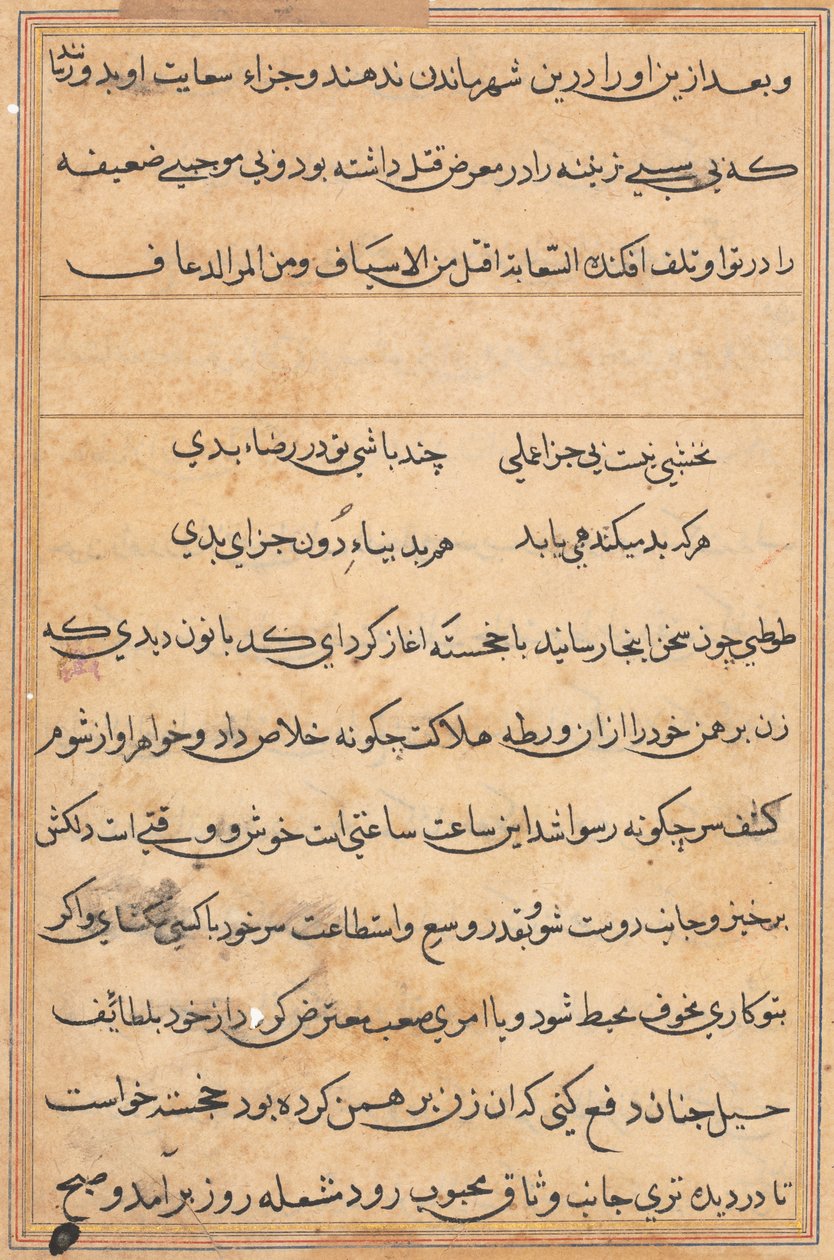 و بعد ازین او را درین شهر ماندن ندهند و جزاء سعایت او بدو رسانند
که بی سببی زینه را در معرض قتل داشته بود و بی موجبی ضعیفه
را در توا و تلف افکنده السّعایة اقتل من الاسیَاف و من المر الدعاف
نخشبی نیست بی جزا عملی چند باشی تو در رضاء بدی
هرکه بد میکند همی یابد هم بد بیناءِ دُون جزای بدی
طوطی چون سخن اینجا رسانید با خجسته اغاز کرد ای کد بانون دیدی که
زن برهمن خود را ازان ورطه هلاکت چکونه خلاص داد و خواهر او از شوم
کشف سر چکونه رسوا شد این ساعت ساعتی است خوش و وقتی است دلکش
برخیز و جانب دوست شو و بقدر وسع و استطاعت سر خود با کسی مکشای و اکر
بتو کاری مخوف محیط شود و یا امری صعب معترض کردد از خود بلطائف
حیل چنان دفع کنی که ان زن برهمن کرده بود خجسته خواست
تا در دیده تری جانب وثاق محبوب رود مشعله روز برآمد و صبح